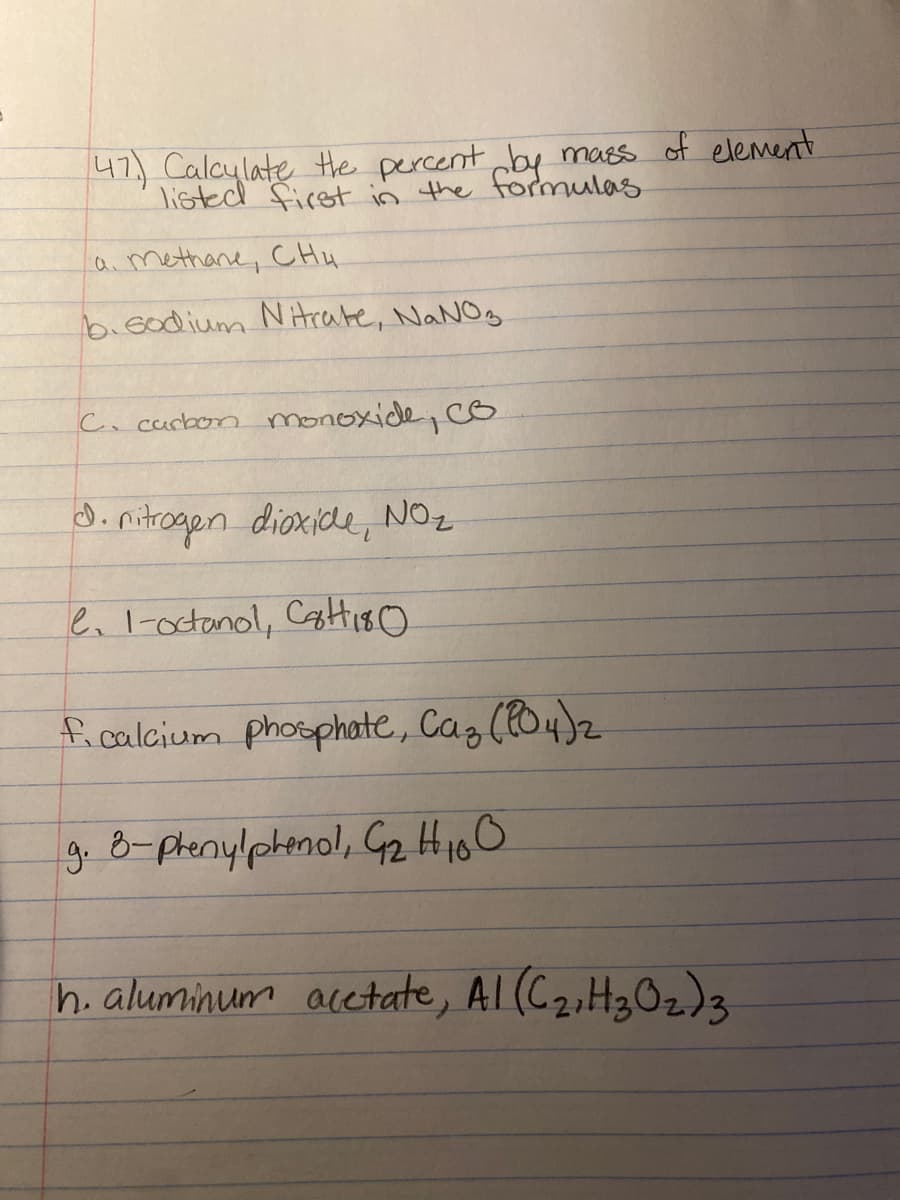 47.) Calculate the percent by mass of element
listed first in the formulas
a. methane, CH4
b. sodium Nitrate, NaNO3
C. carbon monoxide, CO
d. nitrogen dioxide, NO2
e. 1-octanol, C8H18O
f. calcium phosphate, Ca3(PO4)2
g. 3-phenylphenol, C12H10O
h. aluminum acetate, Al(C2,H3O2)3